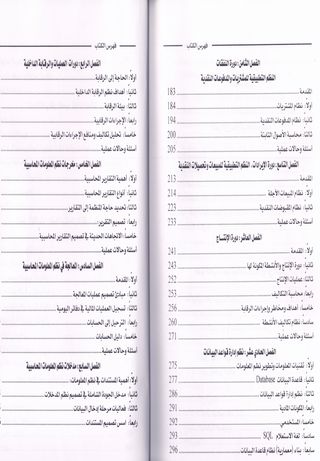 فهرس الكتاب
الفصل الرابع: دورات العمليات والرقابة الداخلية
أولاً: الحاجة إلى الرقابة
ثانياً: أهداف نظم الرقابة الداخلية
ثالثاً: بيئة الرقابة
رابعاً: الإجراءات الرقابية
خامساً: تحليل تكاليف ومنافع الإجراءات الرقابية
أسئلة وحالات عملية
الفصل الخامس: مخرجات نظم المعلومات المحاسبية
أولاً: أهمية التقارير المحاسبية
ثانياً: أنواع التقارير المحاسبية
ثالثاً: تحديد حاجة المنظمة إلى التقارير
رابعاً: تصميم التقارير
خامساً: الاتجاهات الحديثة في تصميم التقارير المحاسبية
أسئلة وحالات عملية
الفصل السادس: المعالجة في نظم المعلومات المحاسبية
أولاً: المقدمة
ثانياً: مبادئ تصميم عمليات المعالجة
ثالثاً: تسجيل العمليات المالية في دفاتر اليومية
رابعاً: الترحيل إلى الحسابات
خامساً: دليل الحسابات
أسئلة وحالات عملية
الفصل السابع: مدخلات نظم المعلومات المحاسبية
أولاً: أهمية المستندات في نظم المعلومات
ثانياً: مدخل الجودة الشاملة في تصميم نظم المدخلات
ثالثاً: فعاليات مرحلة إدخال البيانات
رابعاً: أسس تصميم المستندات
فهرس الكتاب
الفصل الثامن: دورة النفقات
النظم التطبيقية للمشتريات والمدفوعات النقدية
المقدمة 183
أولاً: نظام المشتريات 184
ثانياً: نظام المدفوعات النقدية 194
ثالثاً: محاسبة الأصول الثابتة 200
أسئلة وحالات عملية 205
الفصل التاسع: دورة الإيرادات النظم التطبيقية للمبيعات وتحصيلات النقدية
المقدمة 213
أولاً: نظام المبيعات الآجلة 214
ثانياً: نظام المقبوضات النقدية 227
أسئلة وحالات عملية 235
الفصل العاشر: دورة الإنتاج
أولاً: المقدمة 241
ثانياً: دورة الإنتاج والأنشطة المكونة لها 243
ثالثاً: عمليات الإنتاج 252
رابعاً: محاسبة التكاليف 253
خامساً: أهداف ومخاطر وإجراءات الرقابة 256
سادساً: نظام تكاليف الأنشطة 260
أسئلة وحالات عملية 271
الفصل الحادي عشر: نظم إدارة قواعد البيانات
أولاً: تقنيات المعلومات وتطوير نظم المعلومات 275
ثانياً: قاعدة البيانات Database 277
ثالثاً: نظم إدارة قواعد البيانات 286
رابعاً: المكونات المادية 291
خامساً: المستخدمين 292
سادساً: لغة الاستعلام SQL 293
سابعاً: بناء (تصميم) نظام قاعدة البيانات 296